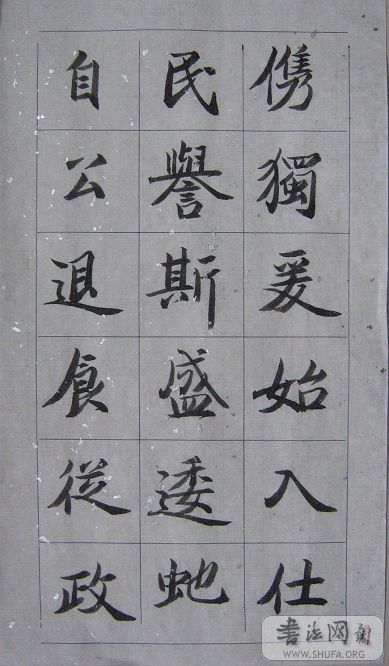 儁獨爰始入仕
民譽斯盛逶虵
自公退食從政
書法网
WWW.SHUFA.ORG